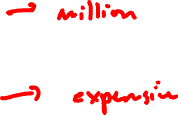 → million
→ expensiv